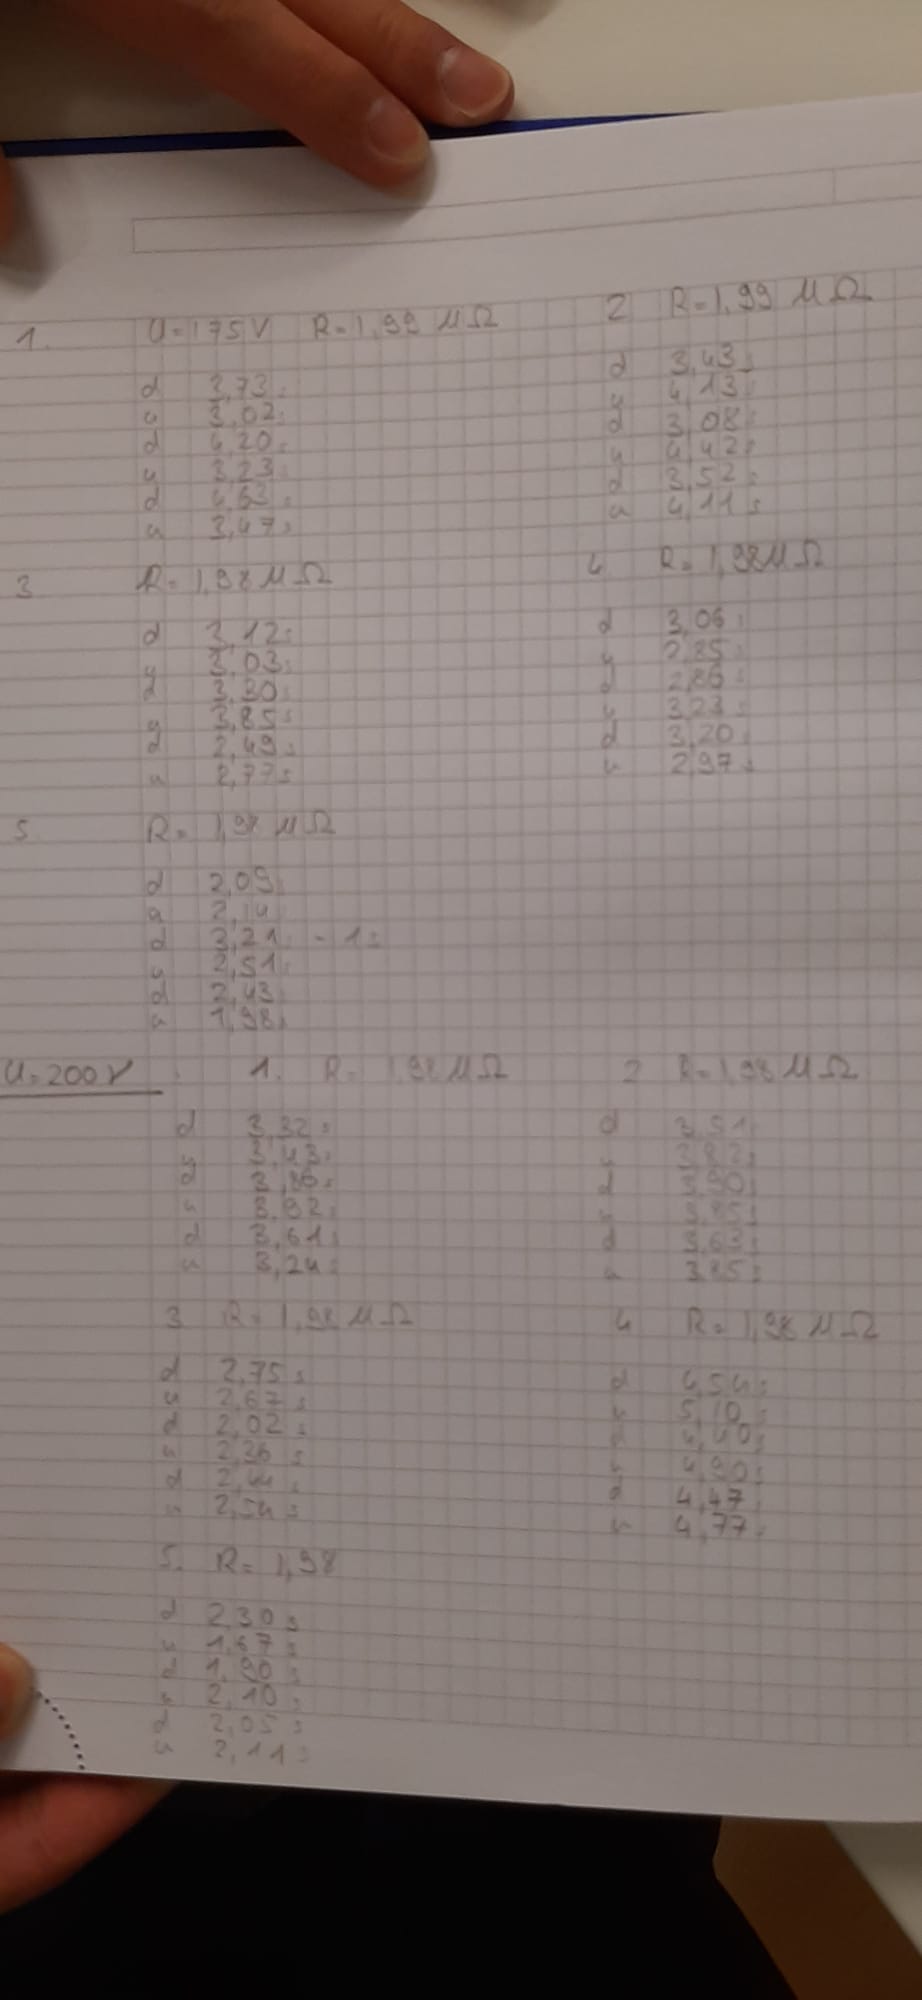 1. U=175V R=1,99 MΩ
d 3,73s
u 3,02s
d 4,20s
u 3,23s
d 4,63s
u 3,47s
2 R=1,99 MΩ
d 3,43s
u 4,13s
d 3,08s
u 4,42s
d 3,52s
u 4,11s
3 R=1,98 MΩ
d 3,12s
u 3,03s
d 3,30s
u 3,85s
d 2,49s
u 2,77s
4 R=1,98 MΩ
d 3,06s
u 2,85s
d 2,86s
u 3,23s
d 3,20s
u 2,97s
5. R=1,98 MΩ
d 2,09s
u 2,14
d 3,21s - 1s
u 2,51s
d 2,43s
u 1,98s
U=200V
1. R=1,98 MΩ
d 3,32s
u 3,43s
d
u
d 3,61s
u 3,24s
2 R=1,98 MΩ
d
u
d 3,90s
u
d 3,63s
u 3,85s
3 R=1,98 MΩ
d 2,75s
u 2,67s
d 2,02s
u 2,26s
d 2,44s
u 2,54s
4 R=1,98 MΩ
d 4,54s
u 5,10s
d 4,40s
u 4,90s
d 4,47s
u 4,77s
5. R=1,98
d 2,30s
u 1,67s
d 1,90s
u 2,10s
d 2,05s
u 2,11s